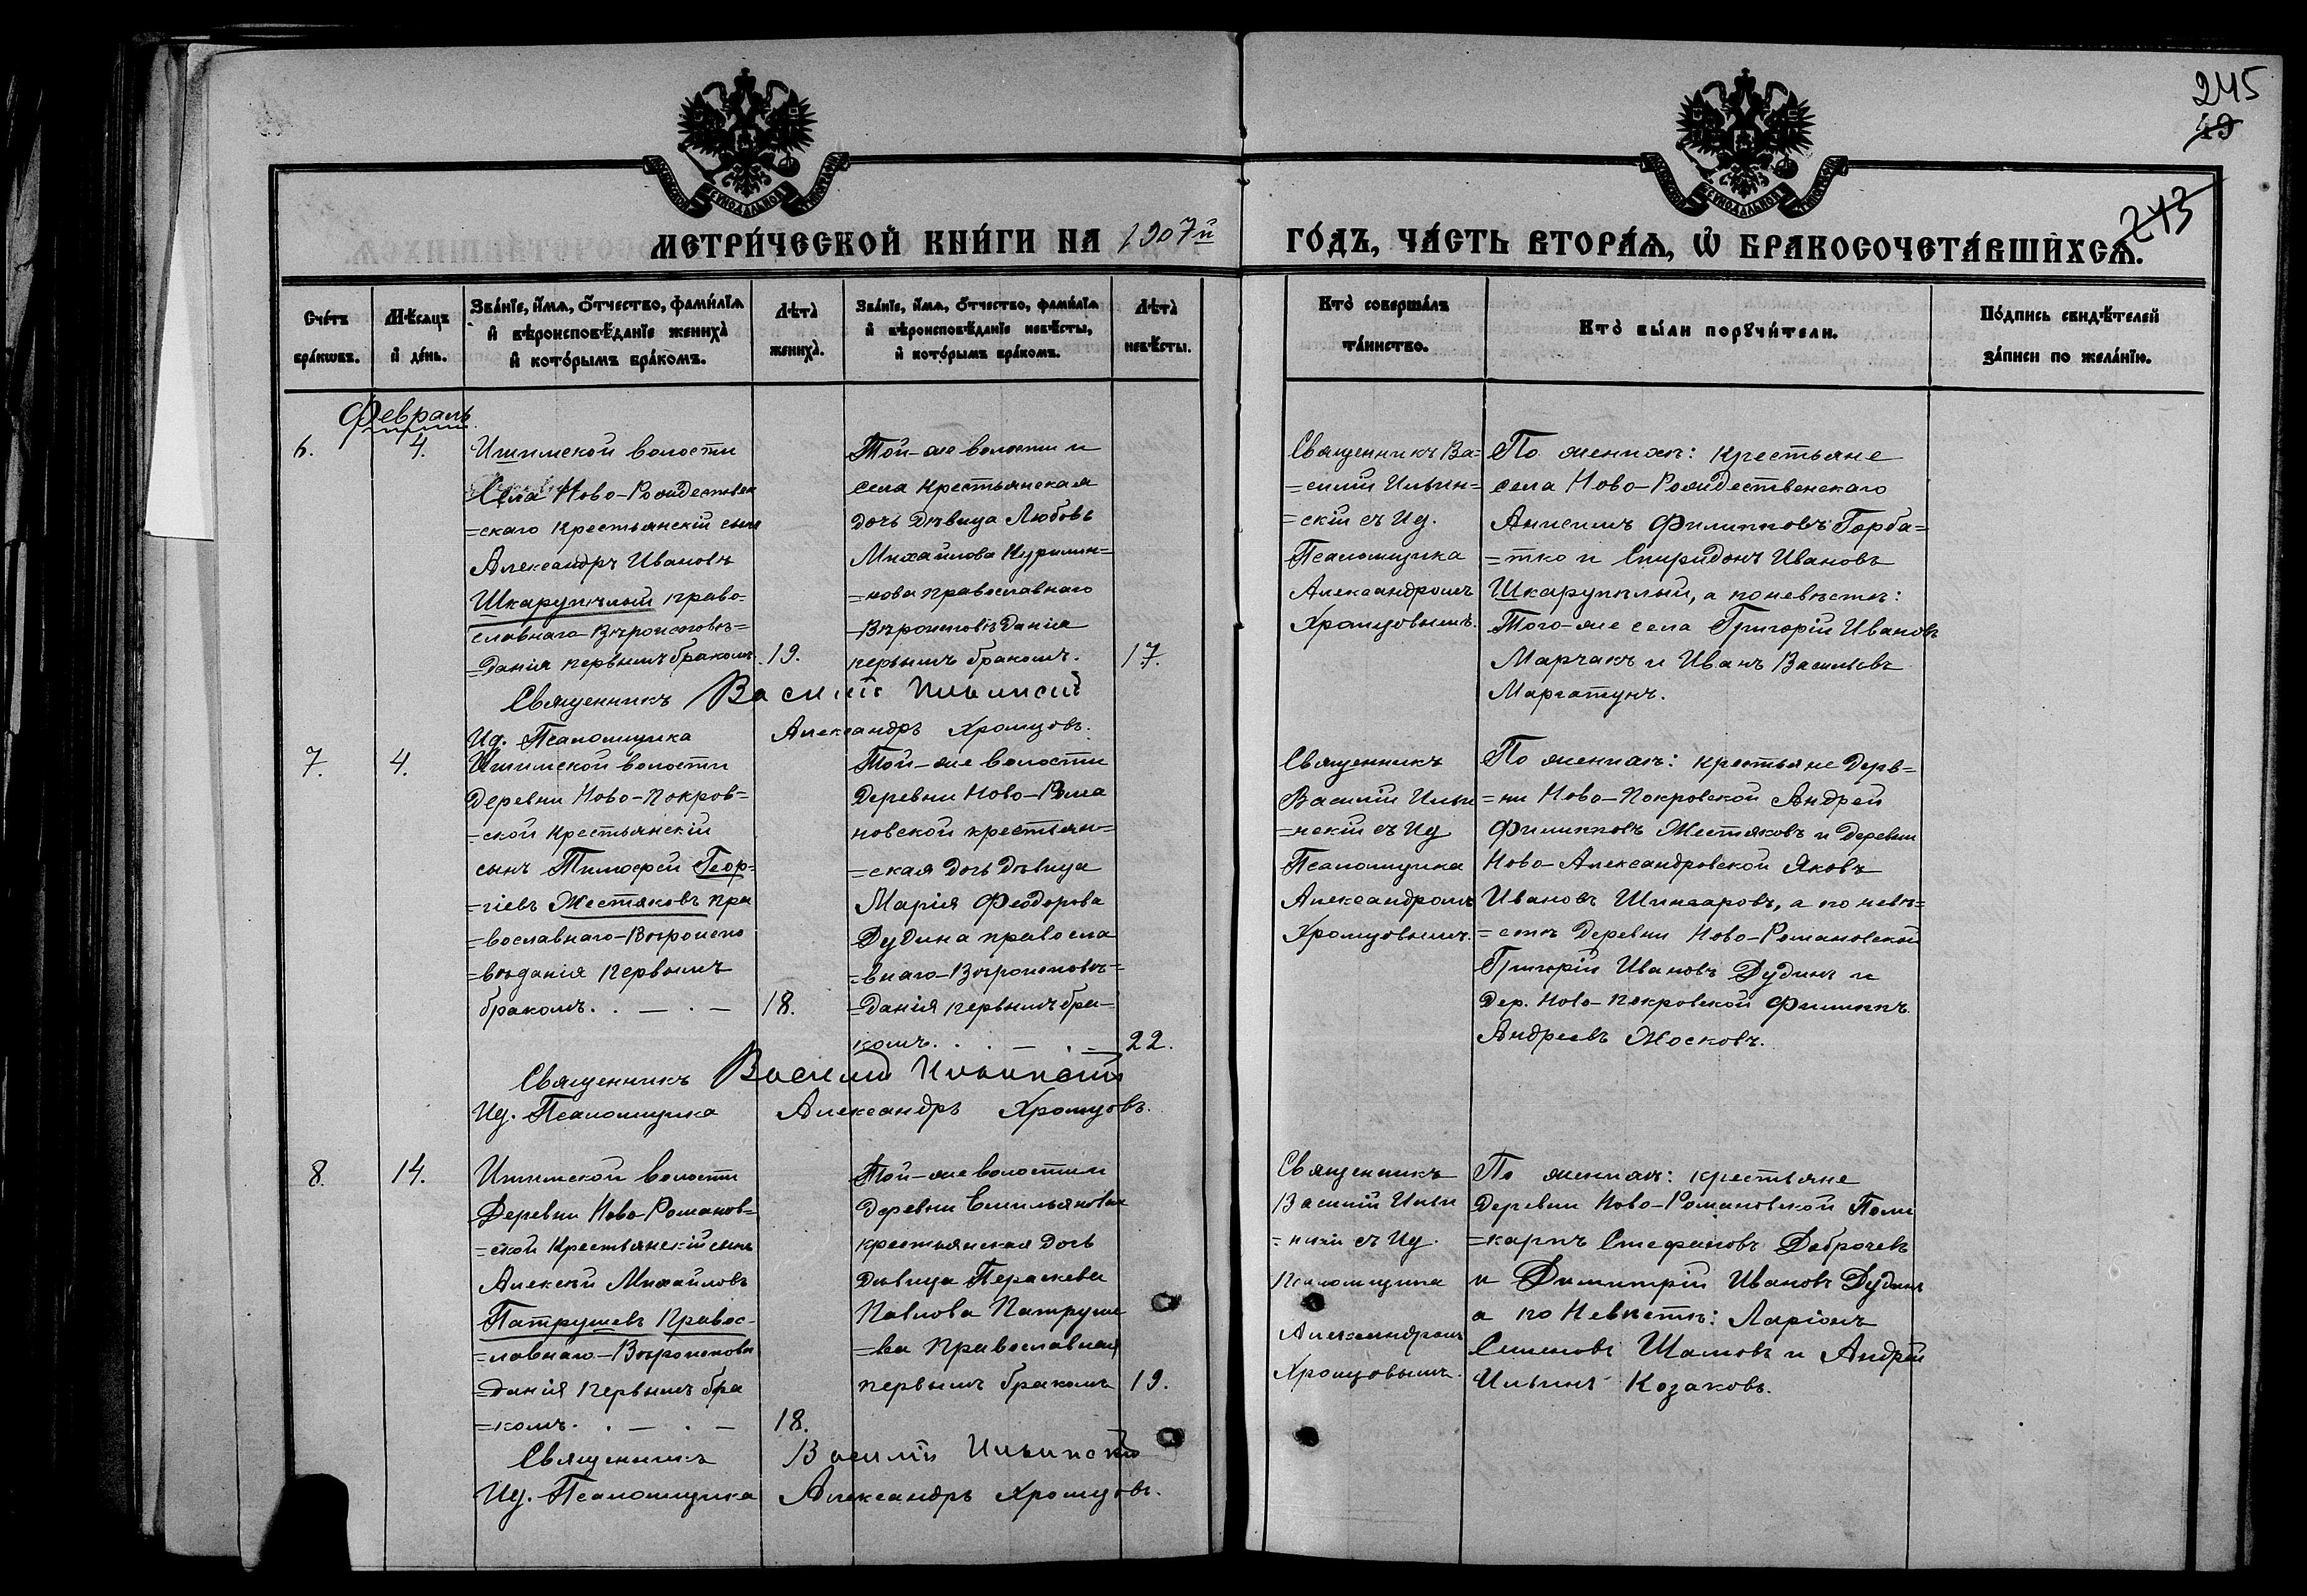 245
49
243
МЕТРИ́ЧЕСКОЙ КНИ́ГИ НА 1907й ГО́ДЪ, ЧА́СТЬ ВТОРА́Ѧ, Ѽ БРАКОСОЧЕТА́ВШИХСѦ.
Сче́тъ бра́кѡвъ.
Мѣ́сяцъ и де́нь.
Зва́нїе, и́мѧ, ѻ́тчество, фами́лїѧ
и҆ вѣроисповѣ́данїе жениха̀
и҆ кото́рымъ бра́комъ.
Лѣта̀ жениха̀.
Зва́нїе, и́мѧ, ѻ́тчество, фами́лїѧ
и҆ вѣроисповѣ́данїе невѣ́сты,
и҆ кото́рымъ бра́комъ.
Лѣта̀ невѣ́сты.
Кто̀ соверша́лъ та́инство.
Кто̀ бы́ли порꙋчи́тели.
По́дпись свидѣ́телей за́писи по жела́нїю.
Февраль.
6.
4.
Ишимской волости
Села Ново-Рождествен
=скаго крестьянскій сынъ
Александръ Ивановъ
Шкарупѣлый право-
славнаго-Вѣроисповѣ=
=данія первымъ бракомъ.
19.
Той-же волости и
села крестьянская
дочь дѣвица Любовь
Михайлова Курилин=
=нова православнаго
Вѣроисповѣданія
первымъ бракомъ.
17.
Священникъ Ва=
=силій Ильин=
=скій съ Ид.
Псаломщика
Александромъ
Хромцовымъ.
По женихѣ: крестьяне
села Ново-Рождественскаго
Анисимъ Филипповъ Горба=
=тко и Спиридонъ Ивановъ
Шкарупѣлый, а по невѣстѣ:
Того-же села Григорій Ивановъ
Марчакъ и Иванъ Васильевъ
Маргатунъ.
Священникъ Василій Ильинскій
Ид. Псаломщика Александръ Хромцовъ.
7.
4.
Ишимской волости
деревни Ново-Покров=
=ской крестьянскій
сынъ Тимофей Геор=
=гіевъ Жестяковъ пра
=вославнаго-Вѣроиспо
=вѣданія первымъ
бракомъ. . — . —
18.
Той-же волости
деревни Ново-Рома
новской крестьян=
=ская дочь дѣвица
Марія Феодорова
Дудина правосла
=внаго-Вѣроисповѣ=
=данія первымъ бра-
комъ. . — . —
22.
Священникъ
Василій Ильи
=нскій съ Ид
Псаломщика
Александромъ
Хромцовымъ.
По женихѣ: крестьяне дерв=
=ни Ново-Покровской Андрей
Филипповъ Жестяковъ и деревни
Ново-Александровской Яковъ
Ивановъ Шингаровъ, а по невѣ=
=стѣ деревни Ново-Романовской
Григорій Ивановъ Дудинъ и
дер. Ново-Покровской Филиппъ
Андреевъ Носковъ.
Священникъ Василий Ильинскій
Ид. Псаломщика Александръ Хромцовъ.
8.
14.
Ишимской волости
Деревни Ново-Романов=
=ской крестьянскій сынъ
Алексѣй Михайловъ
Патрушевъ Правос-
=лавнаго-Вѣроисповѣ
=данія первымъ бра
=комъ. . — . —
18.
Той-же волости
деревни Емильяновки
крестьянская дочь
дѣвица Параскева
Павлова Патруше
=ва Православная
первымъ бракомъ
19.
Священникъ
Василій Ильи
=нскій съ Ид.
Псаломщика
Александромъ
Хромцовымъ.
По женихѣ: крестьяне
деревни Ново-Романовской Поли
=карпъ Стефановъ Доброчевъ
и Димитрій Ивановъ Дудинъ
а по Невѣстѣ: Ларіонъ
Семеновъ Шамовъ и Андрей
Ильинъ Козаковъ.
Священникъ Василій Ильинскій
Ид. Псаломщика Александръ Хромцовъ.